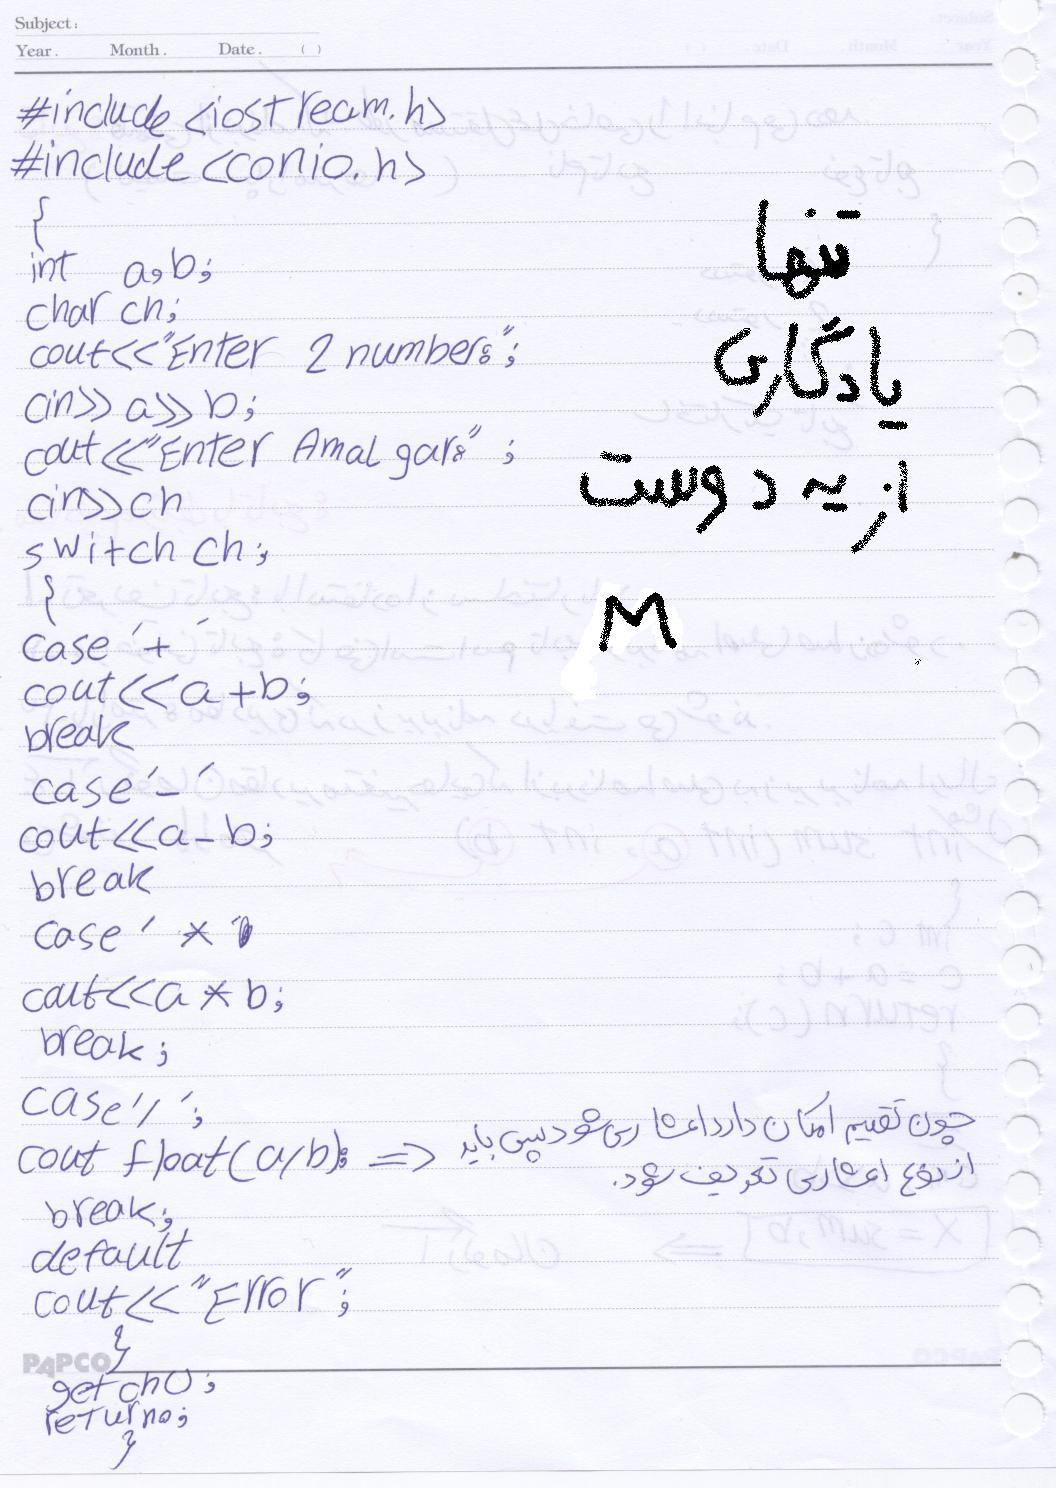 Subject:
Year. Month. Date. ( )
#include <iostream.h>
#include <conio.h>
{
int a,b;
char ch;
cout<<"Enter 2 number:";
cin>>a>>b;
cout<<"Enter Amal gar:" ;
cin>>ch
switch ch;
{
case '+'
cout<<a+b;
break
case '-'
cout<<a-b;
break
case ' * '
cout<<a*b;
break;
case '/ ';
cout float(a/b); => چون تقسیم امکان دارد اعشاری شود پس باید
از نوع اعشاری تعریف شود.
break;
default
cout<<"Error";
}
PAPCO
getch();
return0;
}
تنها
یادگاری
از یه دوست
M